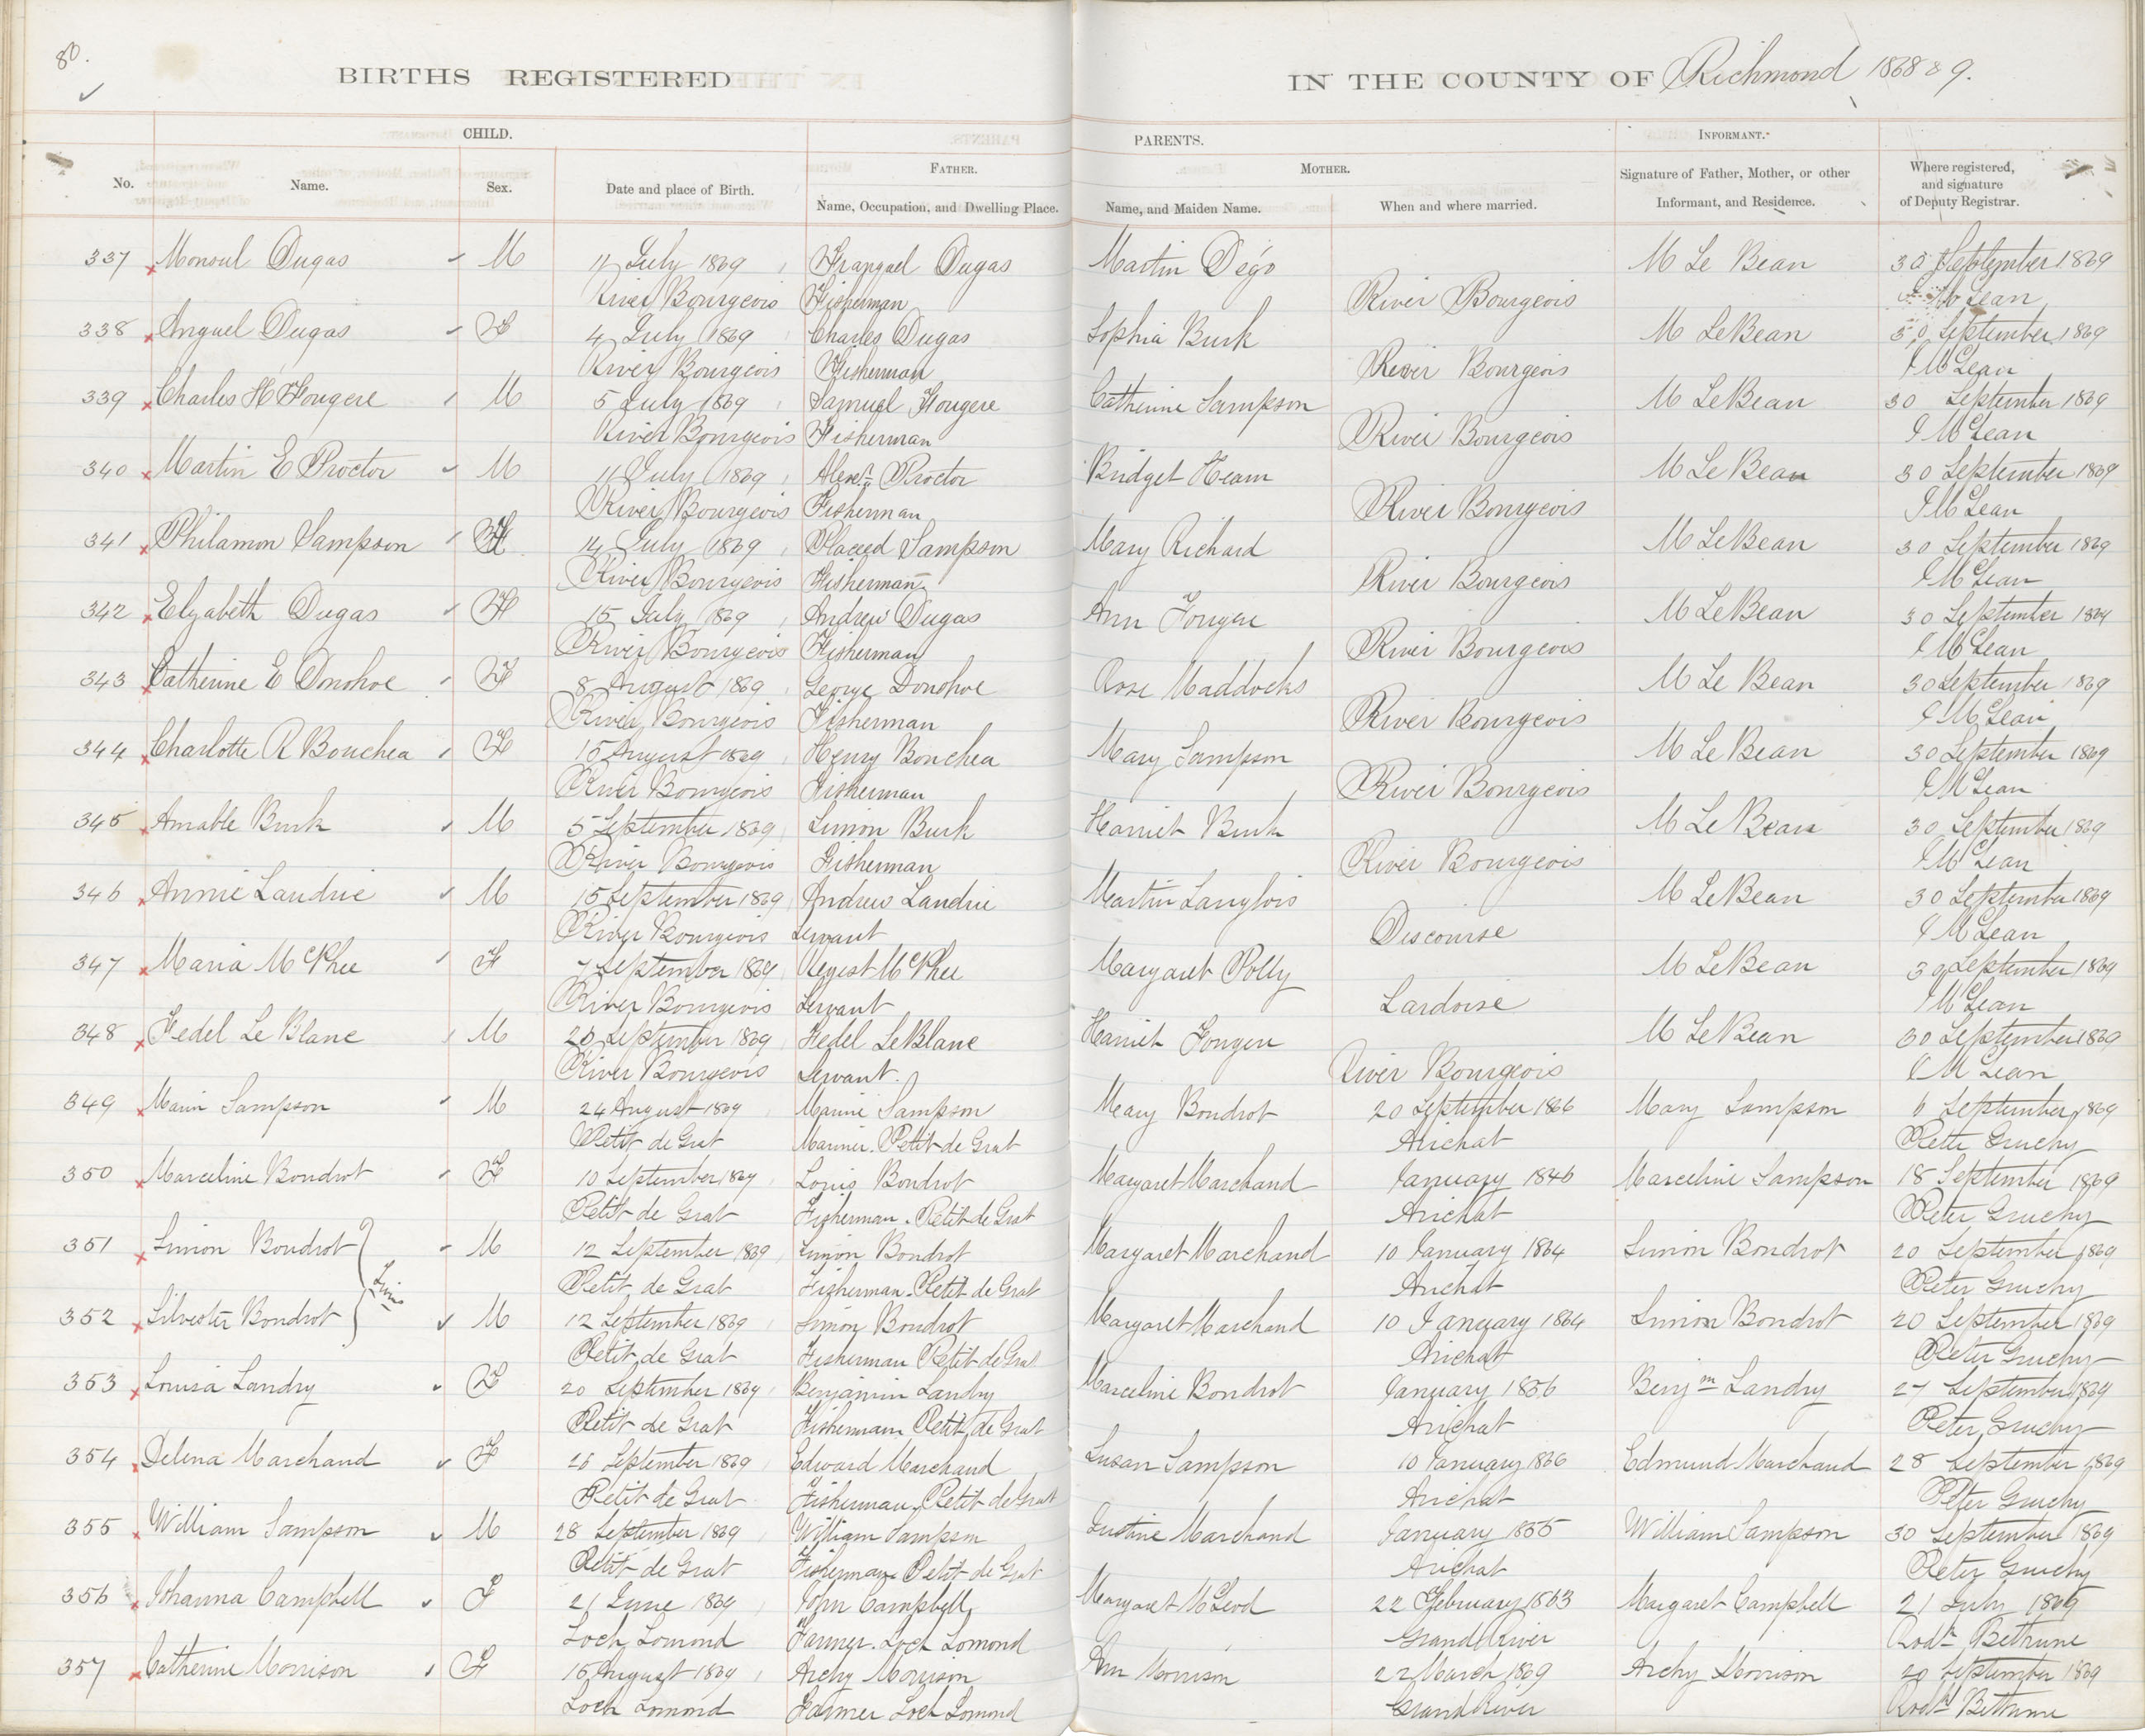 80.
BIRTHS REGISTERED IN THE COUNTY OF Richmond 1868 & 9.
CHILD. PARENTS. INFORMANT.
No. Name. Sex. Date and place of Birth. FATHER. Name, Occupation, and Dwelling Place. MOTHER. Name, and Maiden Name. When and where married. Signature of Father, Mother, or other Informant, and Residence. Where registered, and signature of Deputy Registrar.
337 Monsul Dugas M 11 July 1869 Dugas Martin Dégo M Le Bean 30 September 1869
River Bourgeois Fisherman River Bourgeois McLean
338 Anguel Dugas F 4 July 1869 Charles Dugas Sophia Burk M LeBean 30 September 1869
River Bourgeois Fisherman River Bourgeois J McLean
339 Charles H Fougere M 5 July 1869 Samuel Fougere Catherine Sampson M LeBean 30 September 1869
River Bourgeois Fisherman River Bourgeois J McLean
340 Martin E Proctor M 11 July 1869 Alexr. Proctor Bridget Hearn M Le Bean 30 September 1869
River Bourgeois Fisherman River Bourgeois J McLean
341 Philamon Sampson 14 July 1869 Placed Sampson Mary Richard M LeBean 30 September 1869
River Bourgeois Fisherman River Bourgeois J McLean
342 Elyabeth Dugas F 15 July 1869 Andrew Dugas Ann Fougere M LeBean 30 September 1869
River Bourgeois Fisherman River Bourgeois J McLean
343 Catherine E Donohoe F 8 August 1869 George Donohoe Rose Maddocks M Le Bean 30 September 1869
River Bourgeois Fisherman River Bourgeois J McLean
344 Charlotte R Bouchea F 15 August 1869 Henry Bouchea Mary Sampson M Le Bean 30 September 1869
River Bourgeois Fisherman River Bourgeois J McLean
345 Amable Burk M 5 September 1869 Simon Burk Harriet Burk M LeBean 30 September 1869
River Bourgeois Fisherman River Bourgeois J McLean
346 Annie Landrie M 15 September 1869 Andrew Landrie Martin Langlois M LeBean 30 September 1869
River Bourgeois Servant Discourse J McLean
347 Maria McPhee F 7 September 1869 McPhee Margaret Polly M LeBean 30 September 1869
River Bourgeois Servant Lardoise J McLean
348 Fedel Le Blanc M 20 September 1869 Fedel LeBlanc Harriet Fougere M LeBean 30 September 1869
River Bourgeois Servant. River Bourgeois J McLean
349 Marin Sampson M 24 August 1869 Marine Sampson Mary Boudrot 20 September 1866 Mary Sampson 6 September 1869
Petit de Grat Mariner. Petit de Grat Arichat Peter Gruchy
350 Marceline Boudrot F 10 September 1869 Louis Boudrot Margaret Marchand January 1846 Marceline Sampson 18 September 1869
Petit de Grat Fisherman. Petit de Grat Arichat Peter Gruchy
351 Simon Boudrot M 12 September 1869 Simon Boudrot Margaret Marchand 10 January 1864 Simon Boudrot 20 September 1869
Twins
Petit de Grat Fisherman. Petit de Grat Arichat Peter Gruchy
352 Silvester Boudrot M 12 September 1869 Simon Boudrot Margaret Marchand 10 January 1864 Simon Boudrot 20 September 1869
Petit de Grat Fisherman Petit de Grat Arichat Peter Gruchy
353 Louisa Landry F 20 September 1869 Benjamin Landry Marceline Boudrot January 1856 Benjm Landry 27 September 1869
Petit de Grat Fisherman Petit de Grat Arichat Peter Gruchy
354 Delena Marchand F 26 September 1869 Edward Marchand Susan Sampson 10 January 1866 Edmund Marchand 28 September 1869
Petit de Grat Fisherman. Petit de Grat Arichat Peter Gruchy
355 William Sampson M 28 September 1869 William Sampson Justine Marchand January 1855 William Sampson 30 September 1869
Petit de Grat Fisherman Petit de Grat Arichat Peter Gruchy
356 Johanna Campbell F 21 June 1869 John Campbell Margaret McLeod 22 February 1863 Margaret Campbell 21 July 1869
Loch Lomond Farmer. Loch Lomond Grand River Rodk Bethune
357 Catherine Morrison F 15 August 1869 Archy Morrison Ann Morrison 22 March 1869 Archy Morrison 20 September 1869
Loch Lomond Farmer Loch Lomond Grand River Rodk Bethune